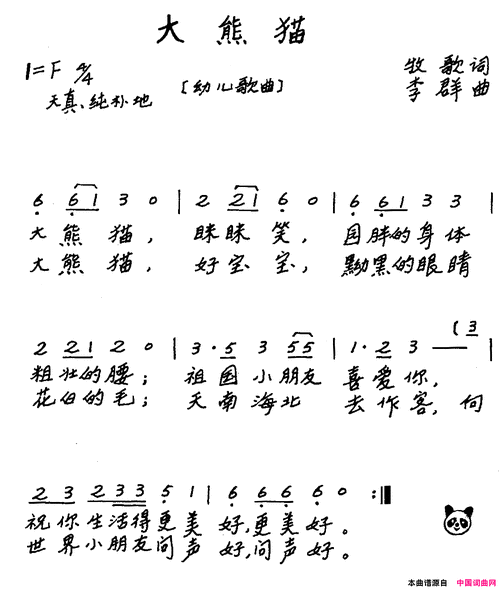 大熊猫
1=F 4/4
天真、纯朴地
[幼儿歌曲]
牧歌词
李群曲
6 6 1 3 0 | 2 2 1 6 0 | 6 6 1 3 3 |
大熊猫, 眯眯笑, 圆胖的身体
大熊猫, 好宝宝, 黝黑的眼睛
2 2 1 2 0 | 3 · 5 3 5 5 | 1 · 2 3 — (3
粗壮的腰; 祖国小朋友 喜爱你,
花白的毛; 天南海北 去作客, 向
2 3 2 3 3 5 1 | 6 6 6 6 0 :||
祝你生活得更美好,更美好。
世界小朋友问声好,问声好。
本曲谱源自 中国词曲网